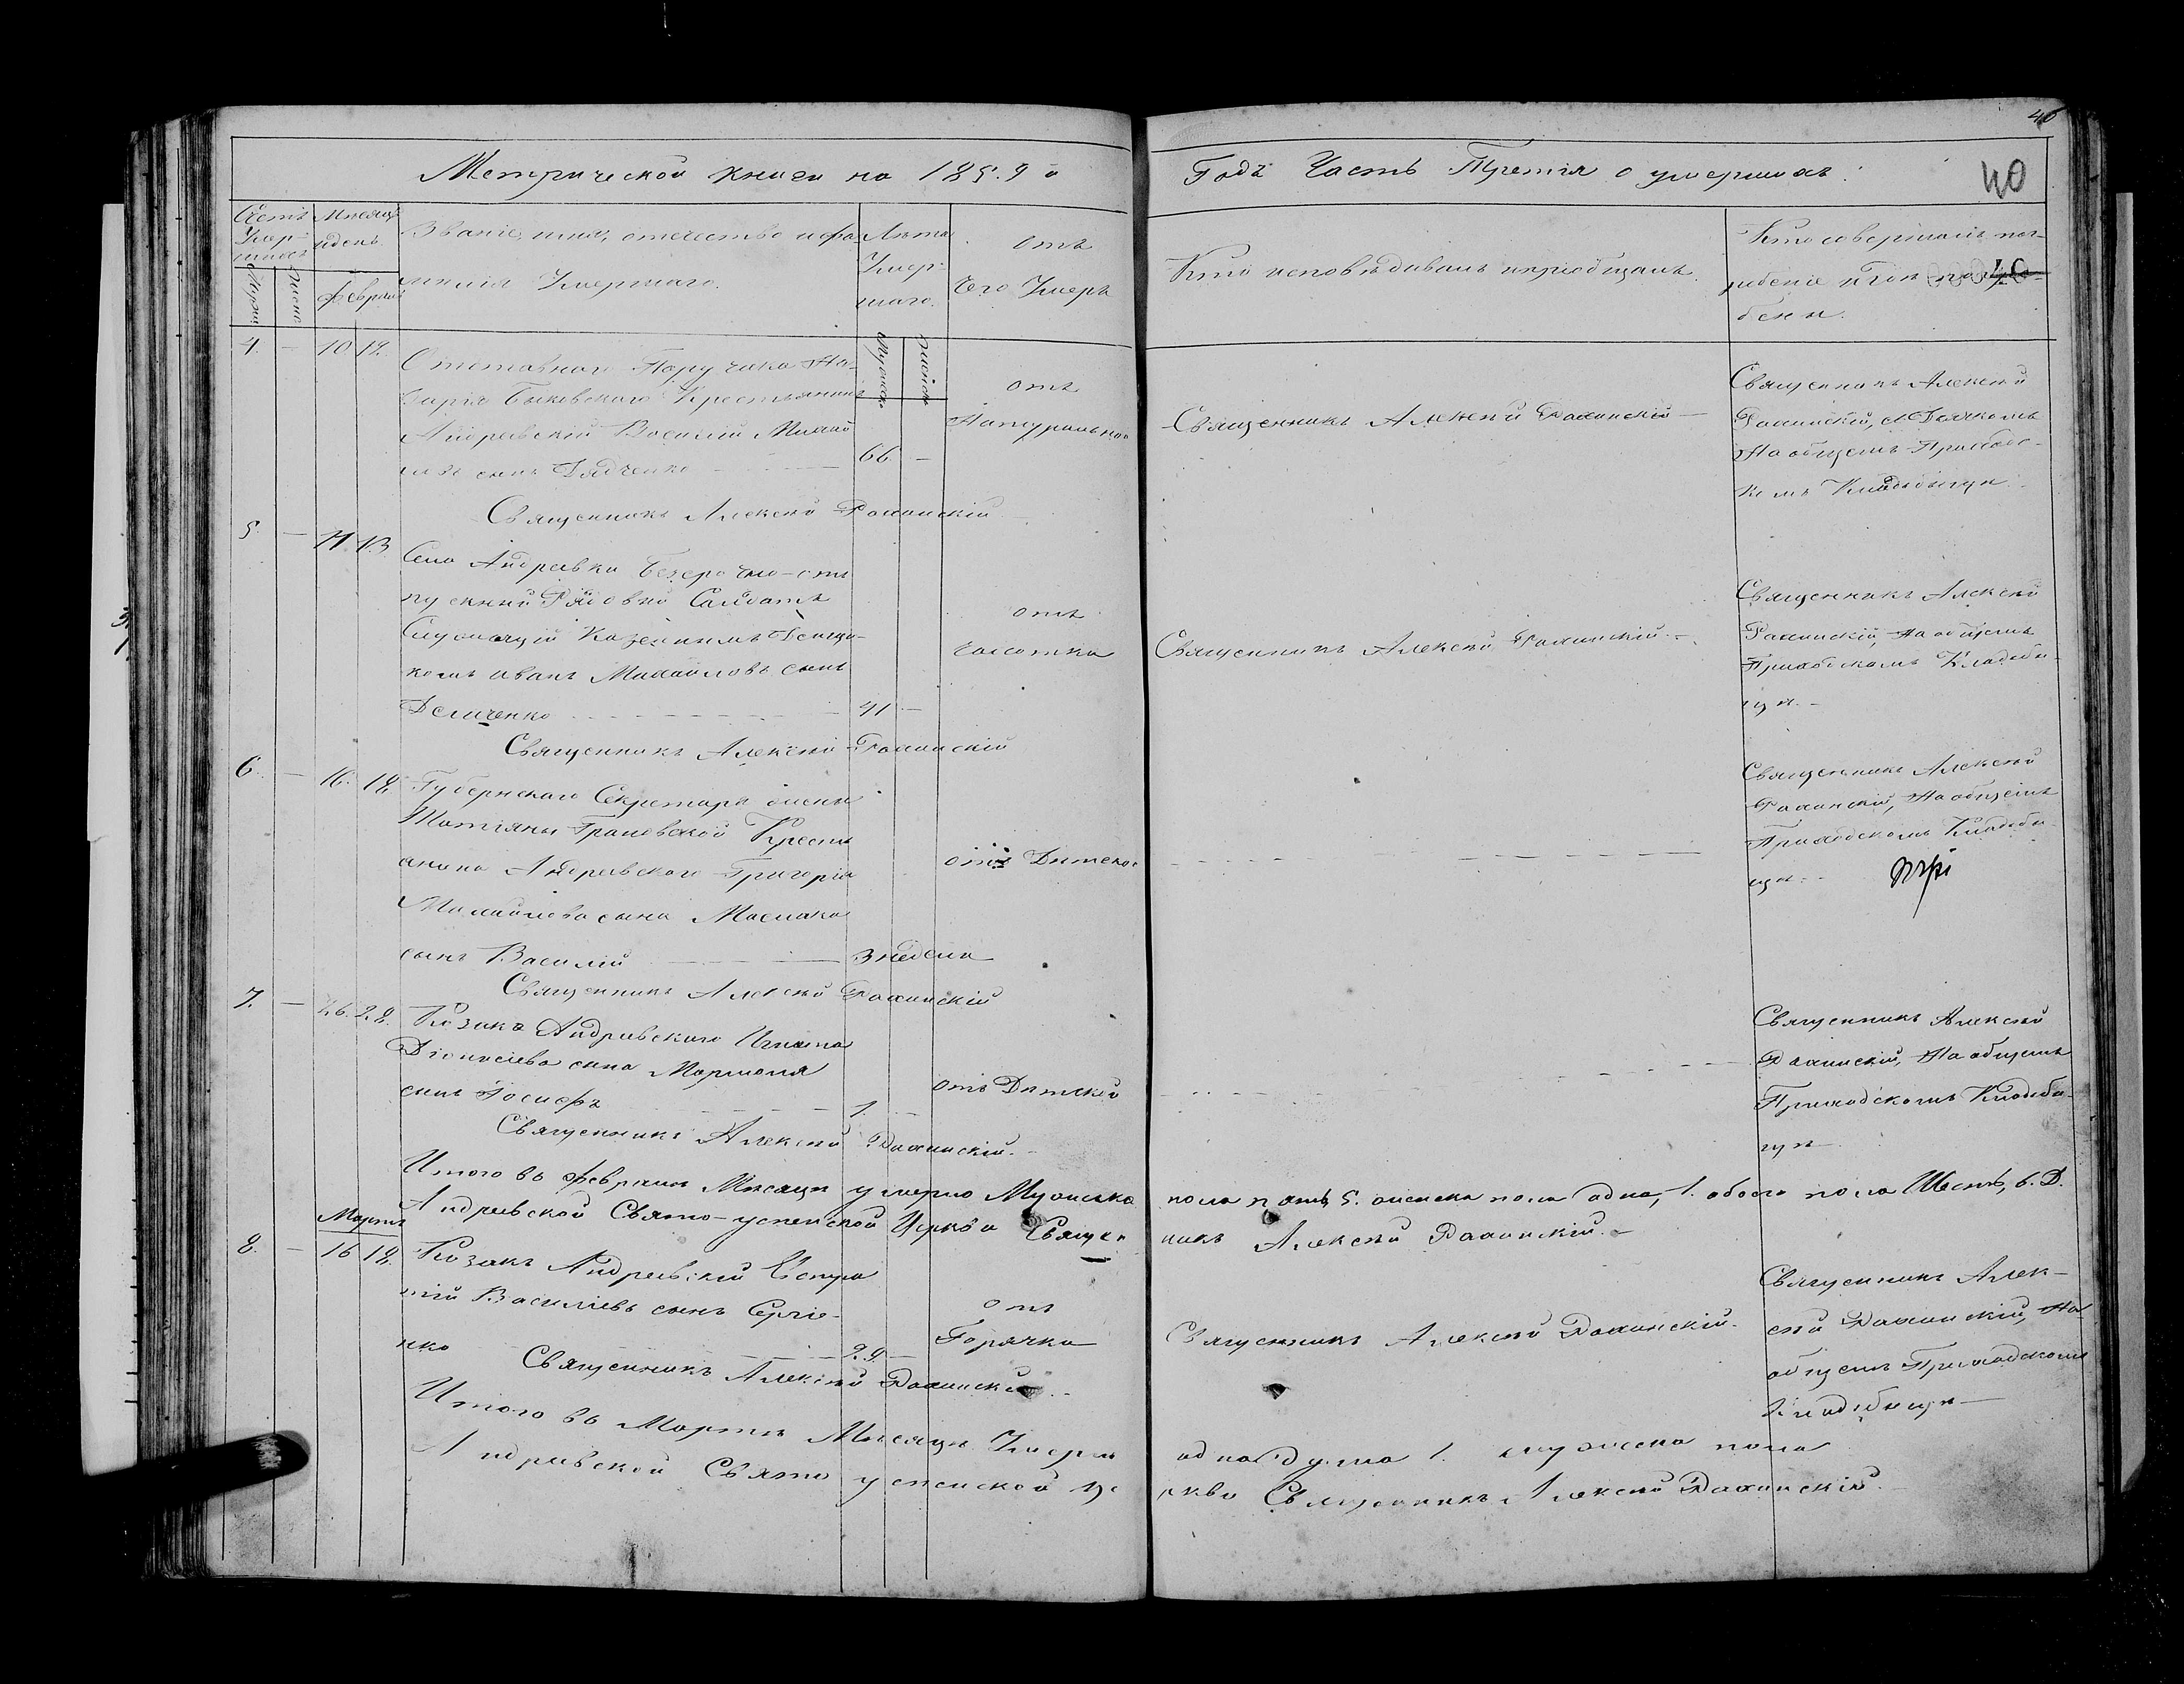 40
Метрической книги на 1859 й
Годъ Часть Третія о умершихъ.
40
Счетъ Умер-шихъ
Мужеск
Женск
Мѣсяцъ и день
Февраль
Званіе, имя, отечество и фа-
милія Умершаго.
Лѣта
Умер-
шаго.
Мужеск
Женск
отъ
Чего Умеръ
Кто исповѣдывалъ и пріобщалъ.
Кто совершалъ пог-
ребеніе и гдѣ погре-
бены.
4. — 10 12.
Отставнаго Поручика На-
зарія Быковскаго Крестьянинъ
Андреевскій Василій Михай
ловъ сынъ Дядченко — 66. —
отъ
Натуральной
Священникъ Алексѣй —
Священникъ Алексѣй
съ Дьячкомъ
На общемъ Приходс-
комъ Кладбищѣ.
Священникъ Алексѣй
5. — 11. 13.
Села Андреевки Безсрочно-от
пускный Рядовый Солдатъ
Служащій Казеннымъ Денщи-
комъ Иванъ Михайловъ сынъ
Демченко — 41 —
отъ
Чахотки
Священникъ Алексѣй
Священникъ Алексѣй
На общемъ
Приходскомъ Кладби-
щѣ. —
Священникъ Алексѣй
6. — 16. 18.
Губернскаго Секретаря жены
Татіяны Крестья
янина Андреевскаго Григорія
Михайлова сына Маслака
сынъ Василій — 3 недели
отъ Дитской
Священникъ Алексѣй
На общемъ
Приходскомъ Кладби
щѣ. —
Священникъ Алексѣй
7. — 26. 28.
Козака Андреевскаго Игната
Діонисіева сына
сынъ Іосифъ — 1. —
отъ Дитской
Священникъ Алексѣй
На общемъ
Приходскомъ Кладби-
щѣ —
Священникъ Алексѣй
Итого въ Февралѣ Мѣсяцѣ умерло Мужеска пола пять 5. женска пола одна, 1. обоего пола Шесть, 6. Д.
Андреевской Свято-успенской Церкви Священ никъ Алексѣй
Мартъ
8. — 16 18.
Козакъ Андреевскій Евстра
тій Василіевъ сынъ Сергіе-
нко — 29. —
отъ
Горячки
Священникъ Алексѣй
Священникъ Алек-
сѣй На
общемъ Приходскомъ
Кладбищѣ —
Священникъ Алексѣй
Итого въ Мартѣ Мѣсяцѣ Умерла одна душа 1. мужеска пола
Андреевской Свято успенской Це ркви Священникъ Алексѣй